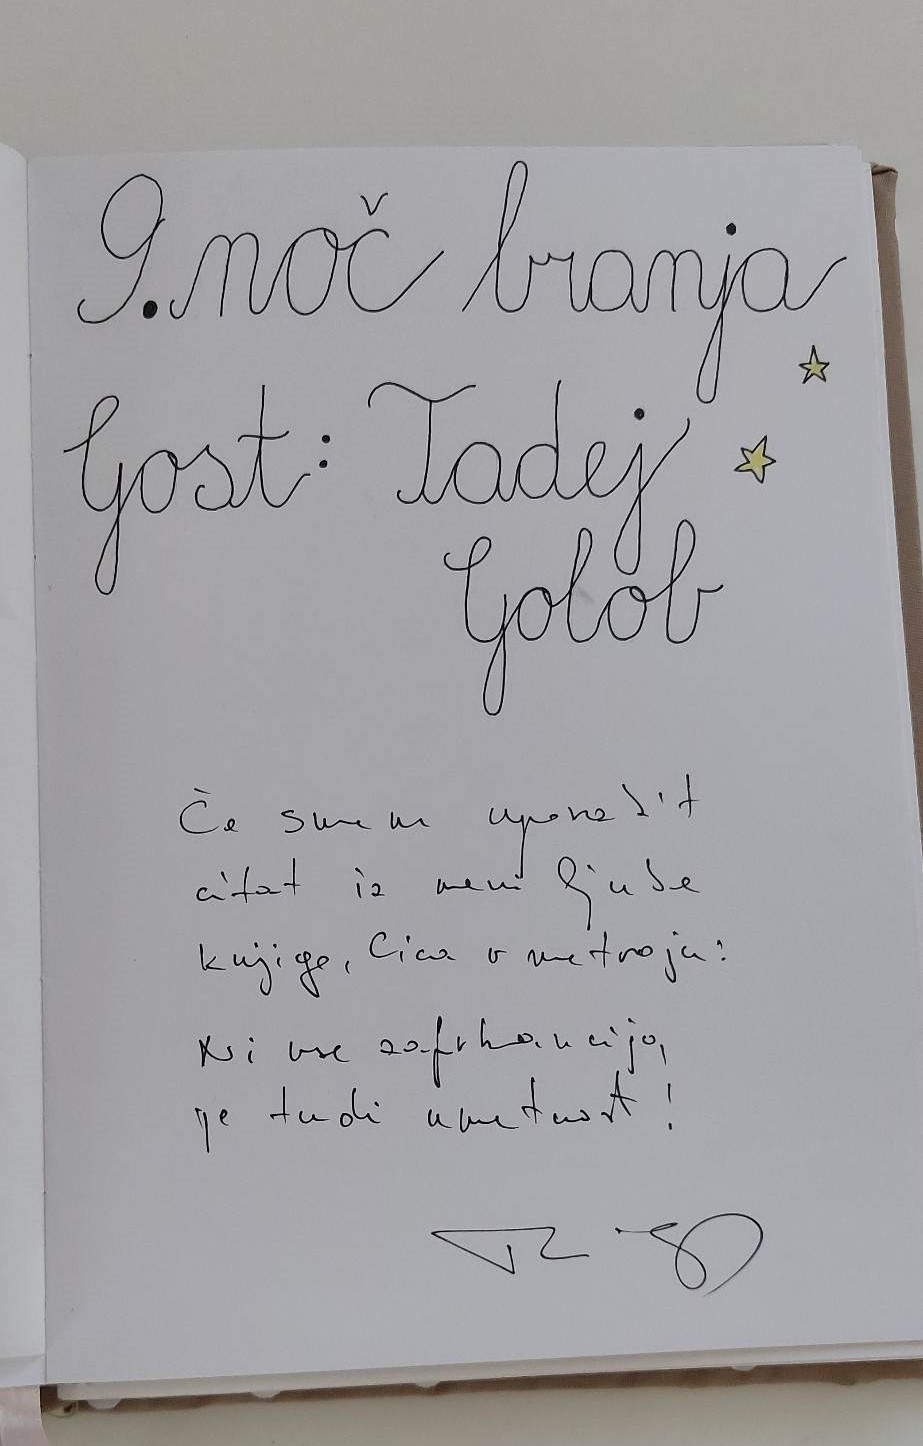 9. noč branja
Gost: Tadej
Golob
Če smem uporabit
citat iz meni ljube
knjige, Cica v metroju:
Ni vse zafrkancija,
je tudi umetnost!